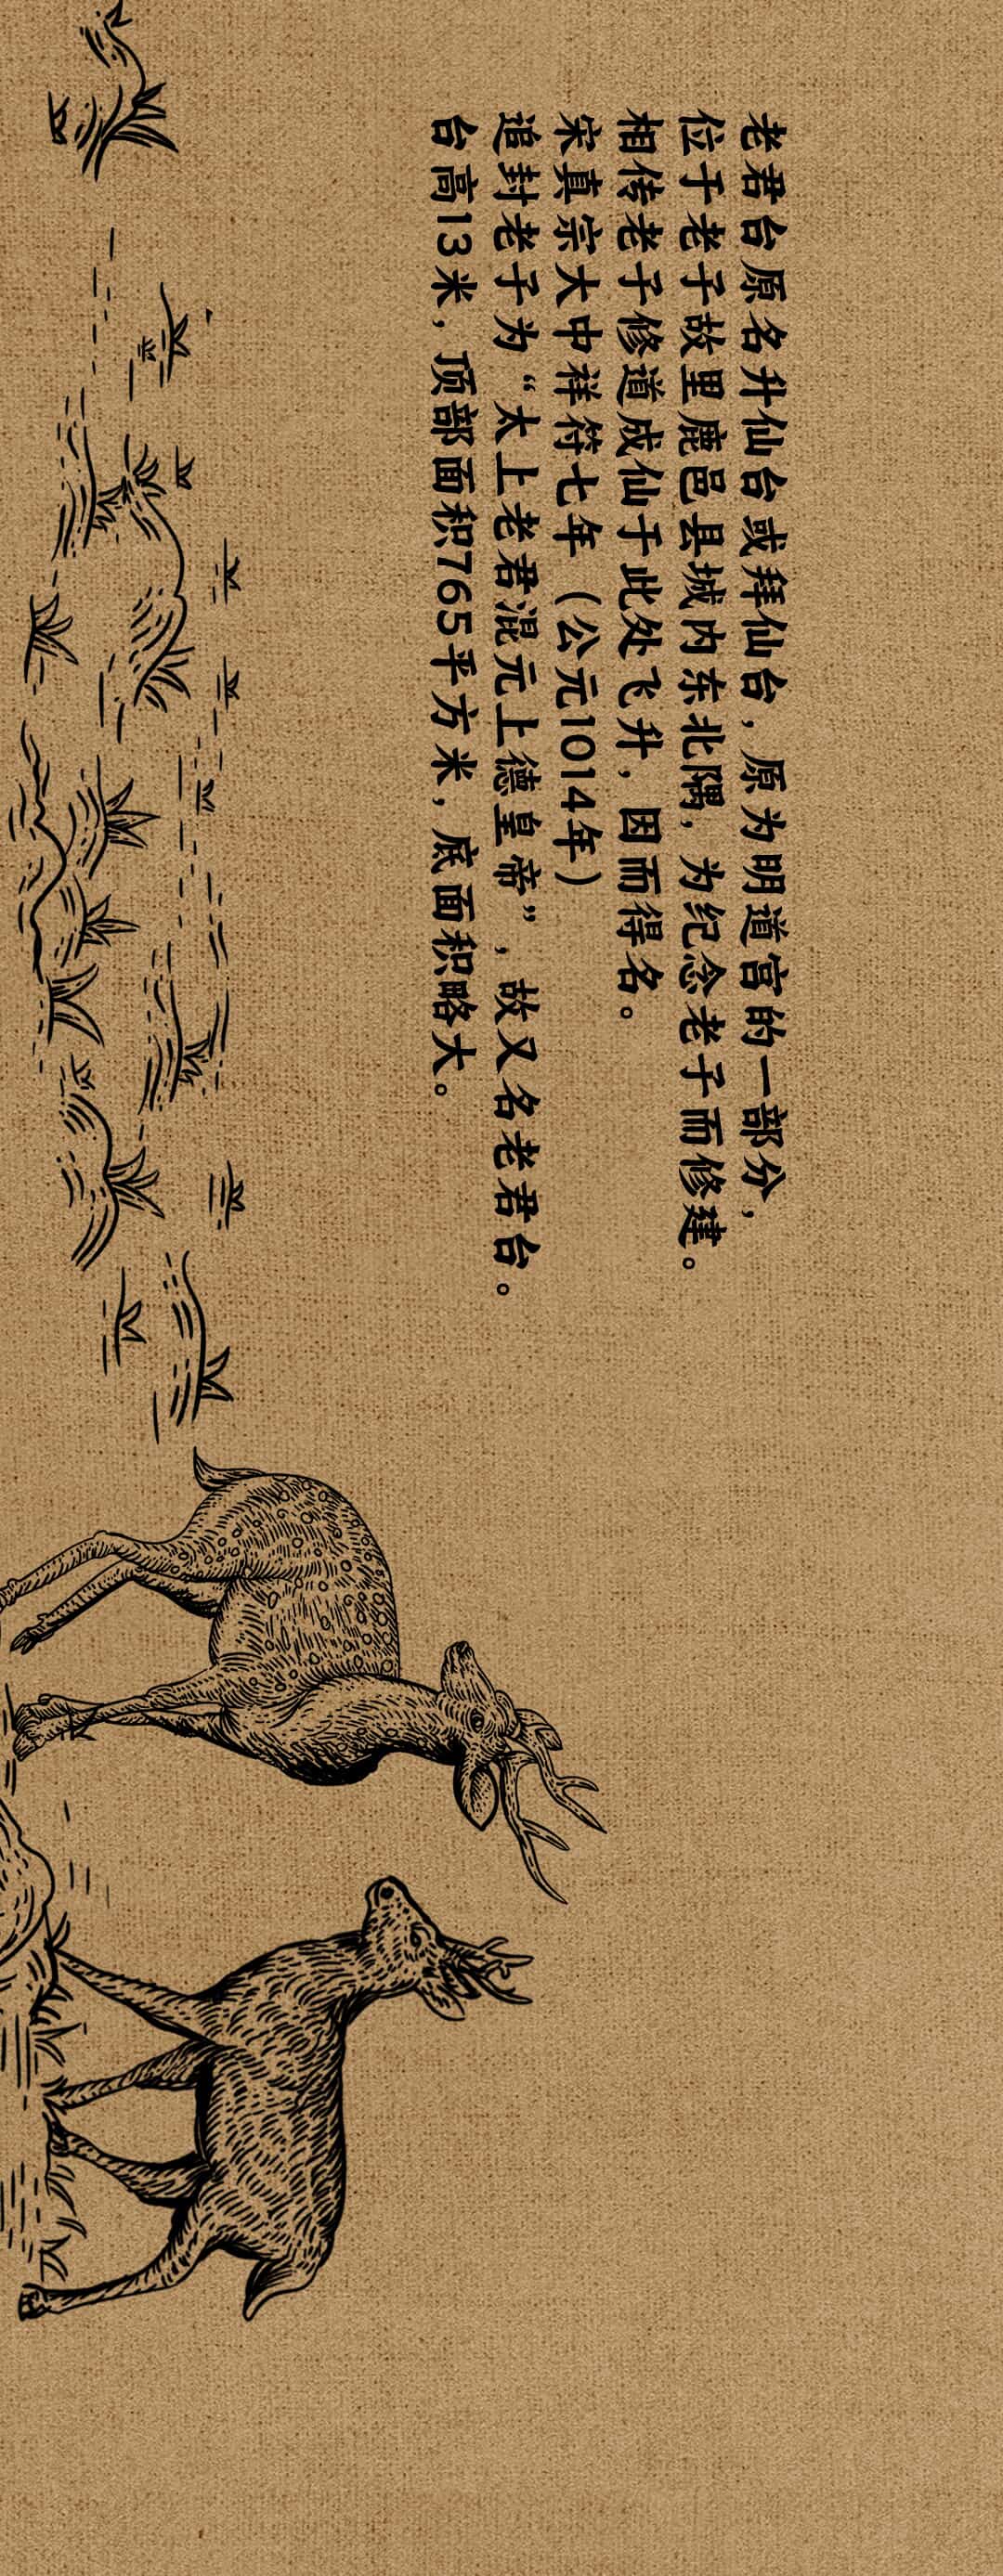 老君台原名升仙台或拜仙台，原为明道宫的一部分，
位于老子故里鹿邑县城内东北隅，为纪念老子而修建。
相传老子修道成仙于此处飞升，因而得名。
宋真宗大中祥符七年（公元1014年）
追封老子为“太上老君混元上德皇帝”，故又名老君台。
台高13米，顶部面积765平方米，底面积略大。